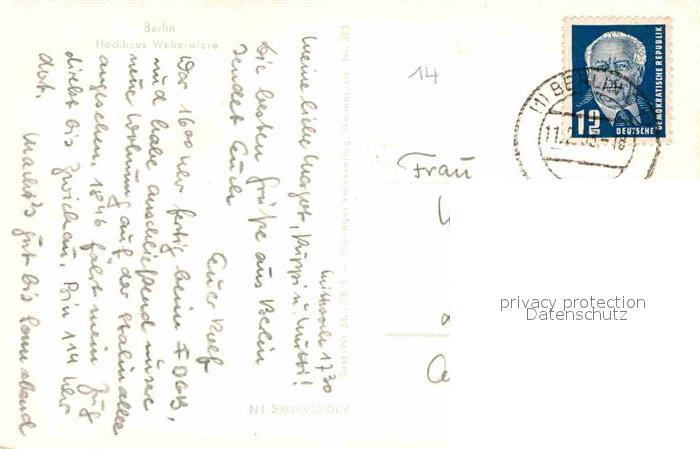 Berlin
Hochhaus Weberwiese
Mittwoch 1730
Meine liebe Margot, Puppi u. Mutti!
Die besten Grüße aus Berlin
sendet Euch
Euer Rolf
War 1600 Uhr fertig beim FDGB,
und habe anschließend unsere
neue Wohnung auf der Stalinallee
angesehen. 1846 fährt mein Zug
direkt bis Zwickau. Bin 114 Uhr
dort. Macht's gut bis Sonnabend
Best.-Nr. St. 1126 G — Thüringer Volksverlag, Weimar, Lz. Nr. 313
14
Frau
(1) BERLIN
12
DEUTSCHE
DEMOKRATISCHE REPUBLIK
privacy protection
Datenschutz